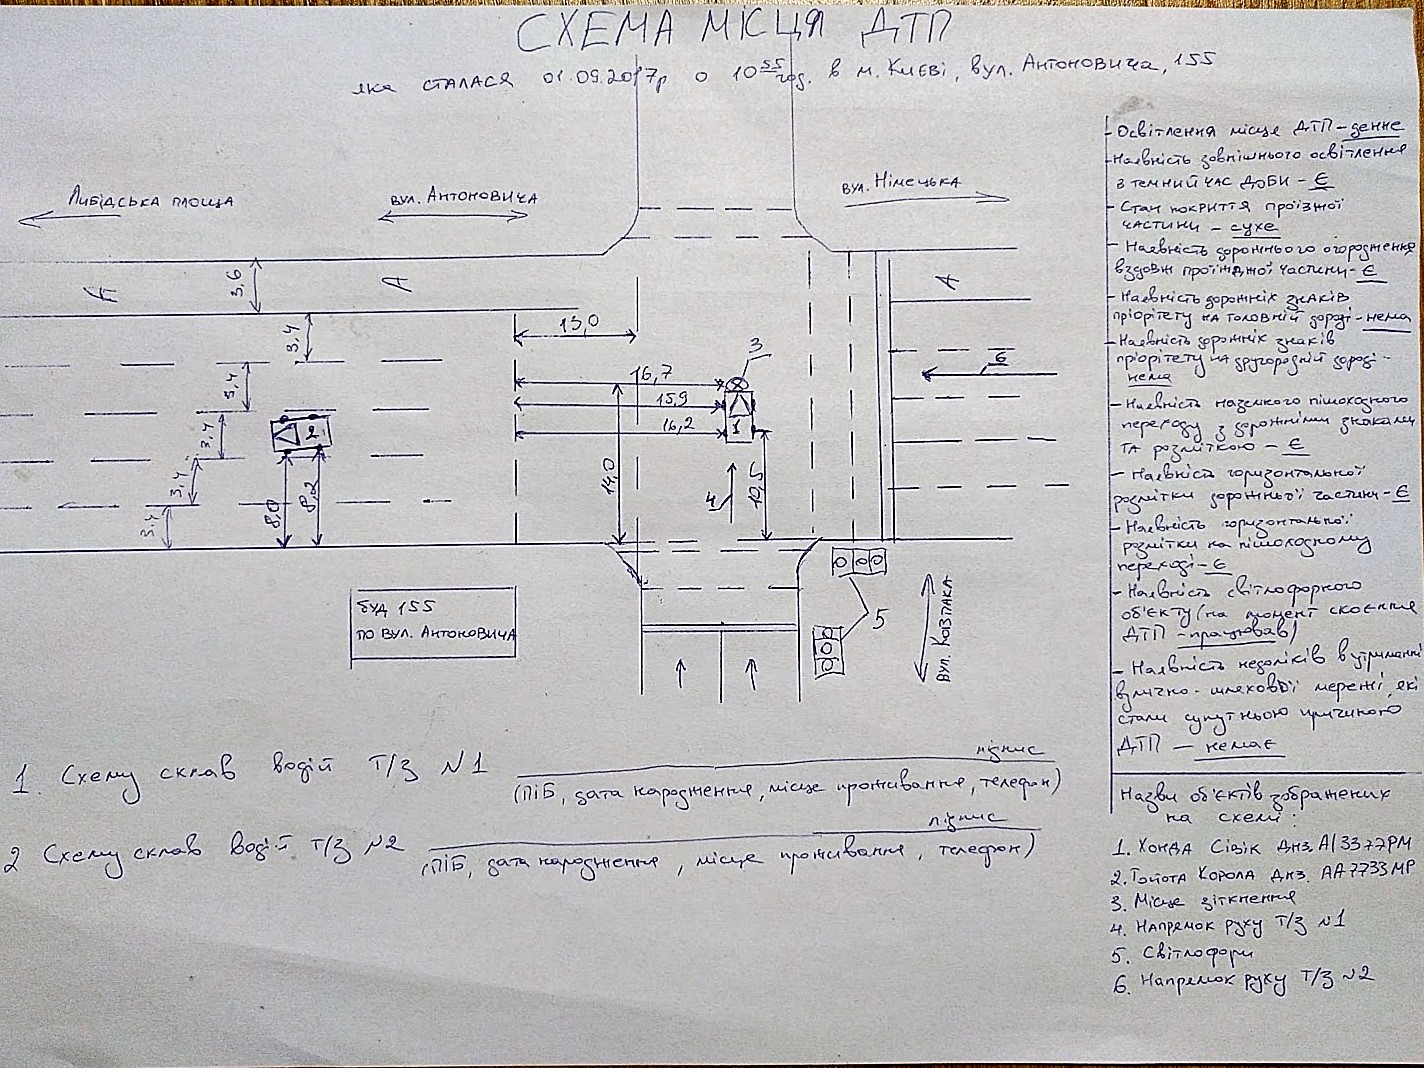 СХЕМА МІСЦЯ ДТП
яка сталася 01.09.2017р о 10⁵⁵год. в м. Києві, вул. Антоновича, 155
Либідська площа
вул. Антоновича
вул. Німецька
А
А
А
3,6
3,4
3,4
3,4
3,4
3,4
13,0
16,7
15,9
16,2
14,0
10,5
8,0
8,2
3
1
2
4
6
5
буд 155
по вул. Антоновича
вул. Ковпака
- Освітлення місце ДТП - денне
- Наявність зовнішнього освітлення
з темний час доби - є
- Стан покриття проїзної
частини - сухе
- Наявність дорожнього огородження
вздовж проїжджої частини - є
- Наявність дорожніх знаків
пріорітету на головній дорозі - нема
- Наявність дорожніх знаків
пріорітету на другорядній дорозі -
нема
- Наявність наземного пішохідного
переходу з дорожніми знаками
та розміткою - є
- Наявність горизонтальної
розмітки дорожньої частини - є
- Наявність горизонтальної
розмітки на пішохідному
переході - є
- Наявність світлофорного
об'єкту (на момент скоєння
ДТП - працював)
- Наявність недоліків в утриманні
вулично-шляхової мережі, які
стали супутньою причиною
ДТП - немає
Назви об'єктів зображених
на схемі:
1. Хонда Сівік днз. АІ3377РМ
2. Тойота Корола днз. АА7733МР
3. Місце зіткнення
4. Напрямок руху Т/з №1
5. Світлофори
6. Напрямок руху Т/з №2
1. Схему склав водій Т/з №1 підпис
(ПІБ, дата народження, місце проживання, телефон)
2 Схему склав водій Т/з №2 підпис
(ПІБ, дата народження, місце проживання, телефон)